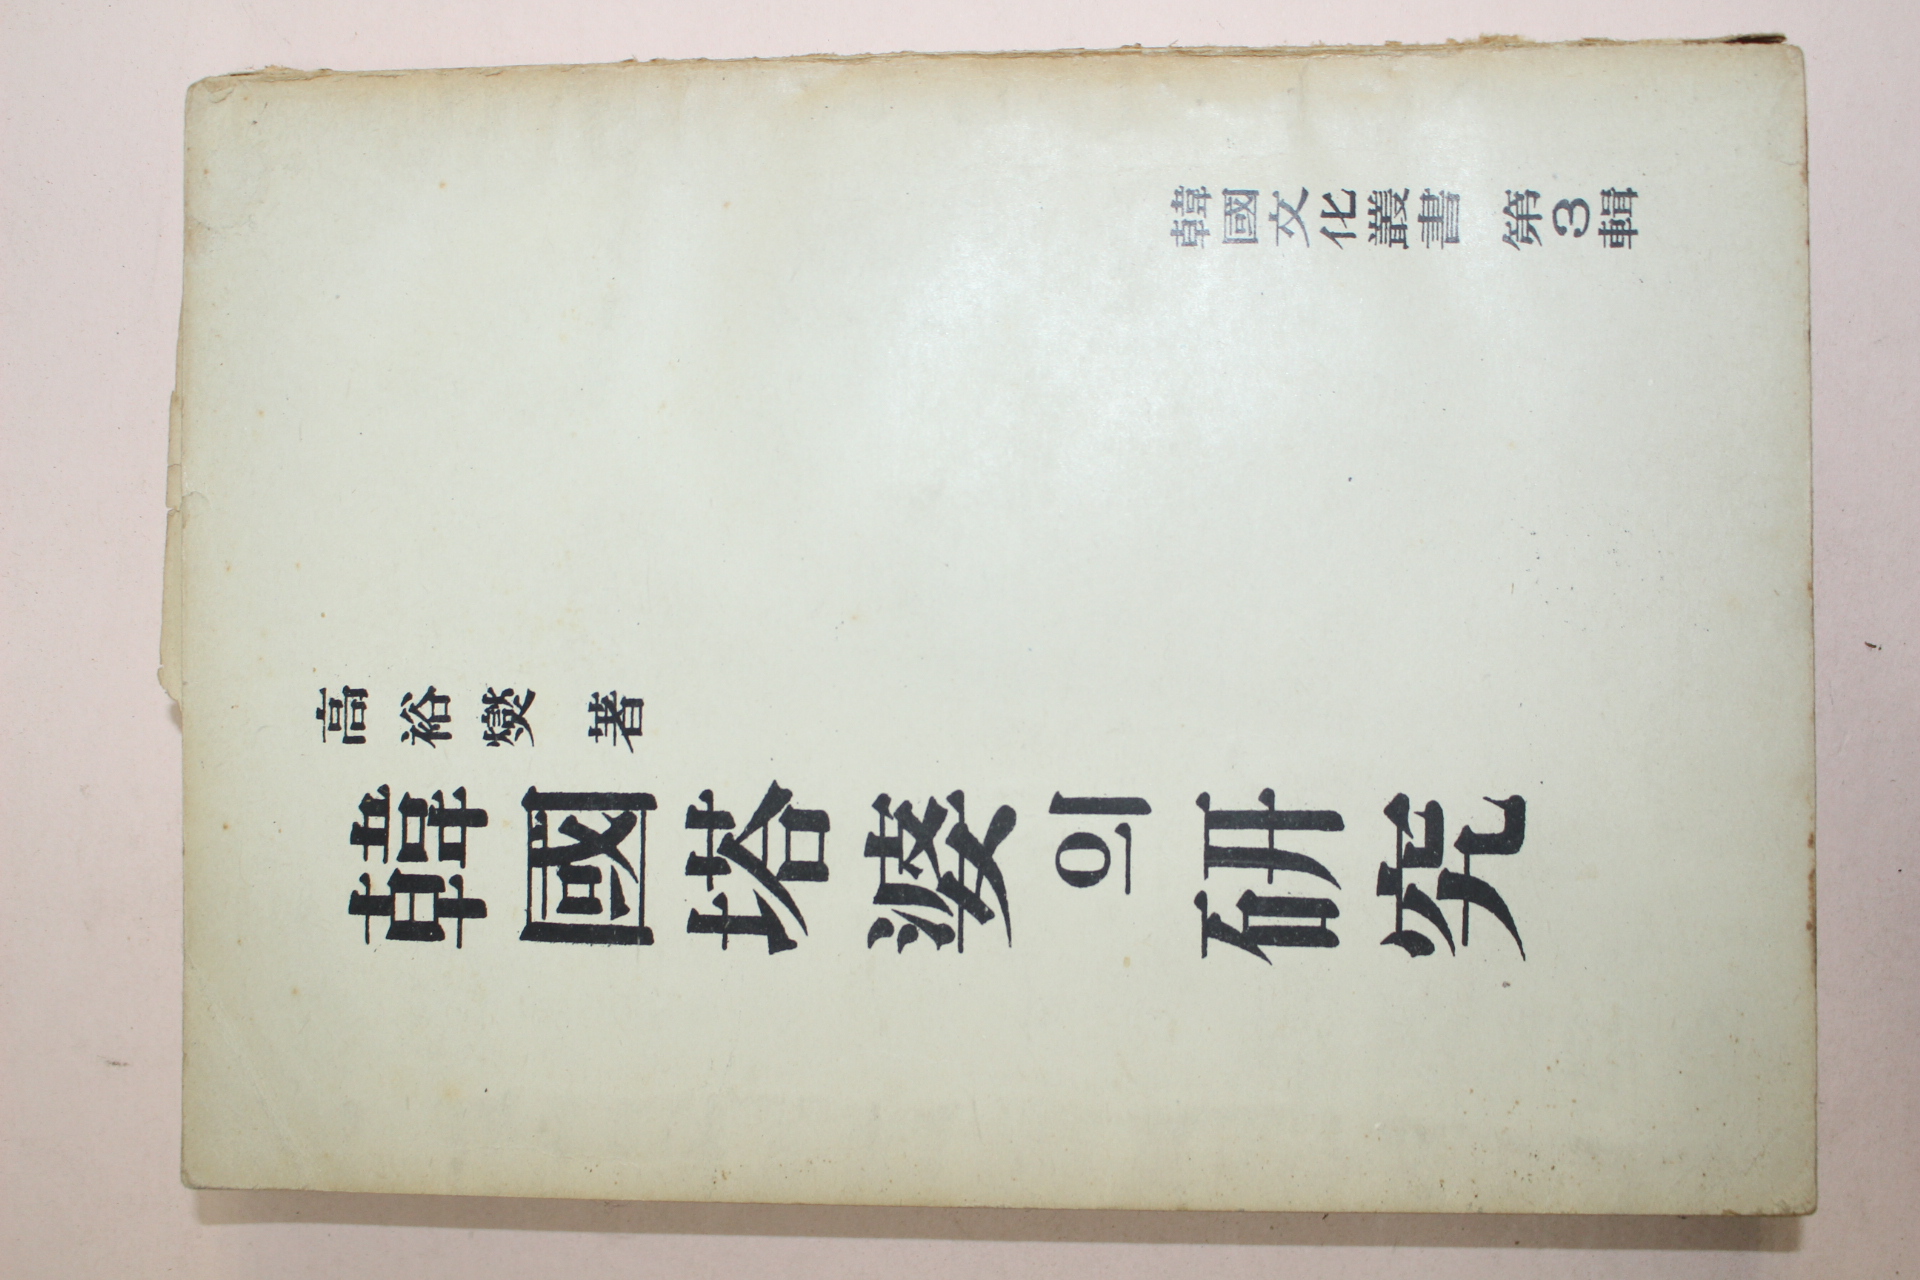 韓國文化叢書 第3輯
高裕燮 著
韓國塔婆의 研究